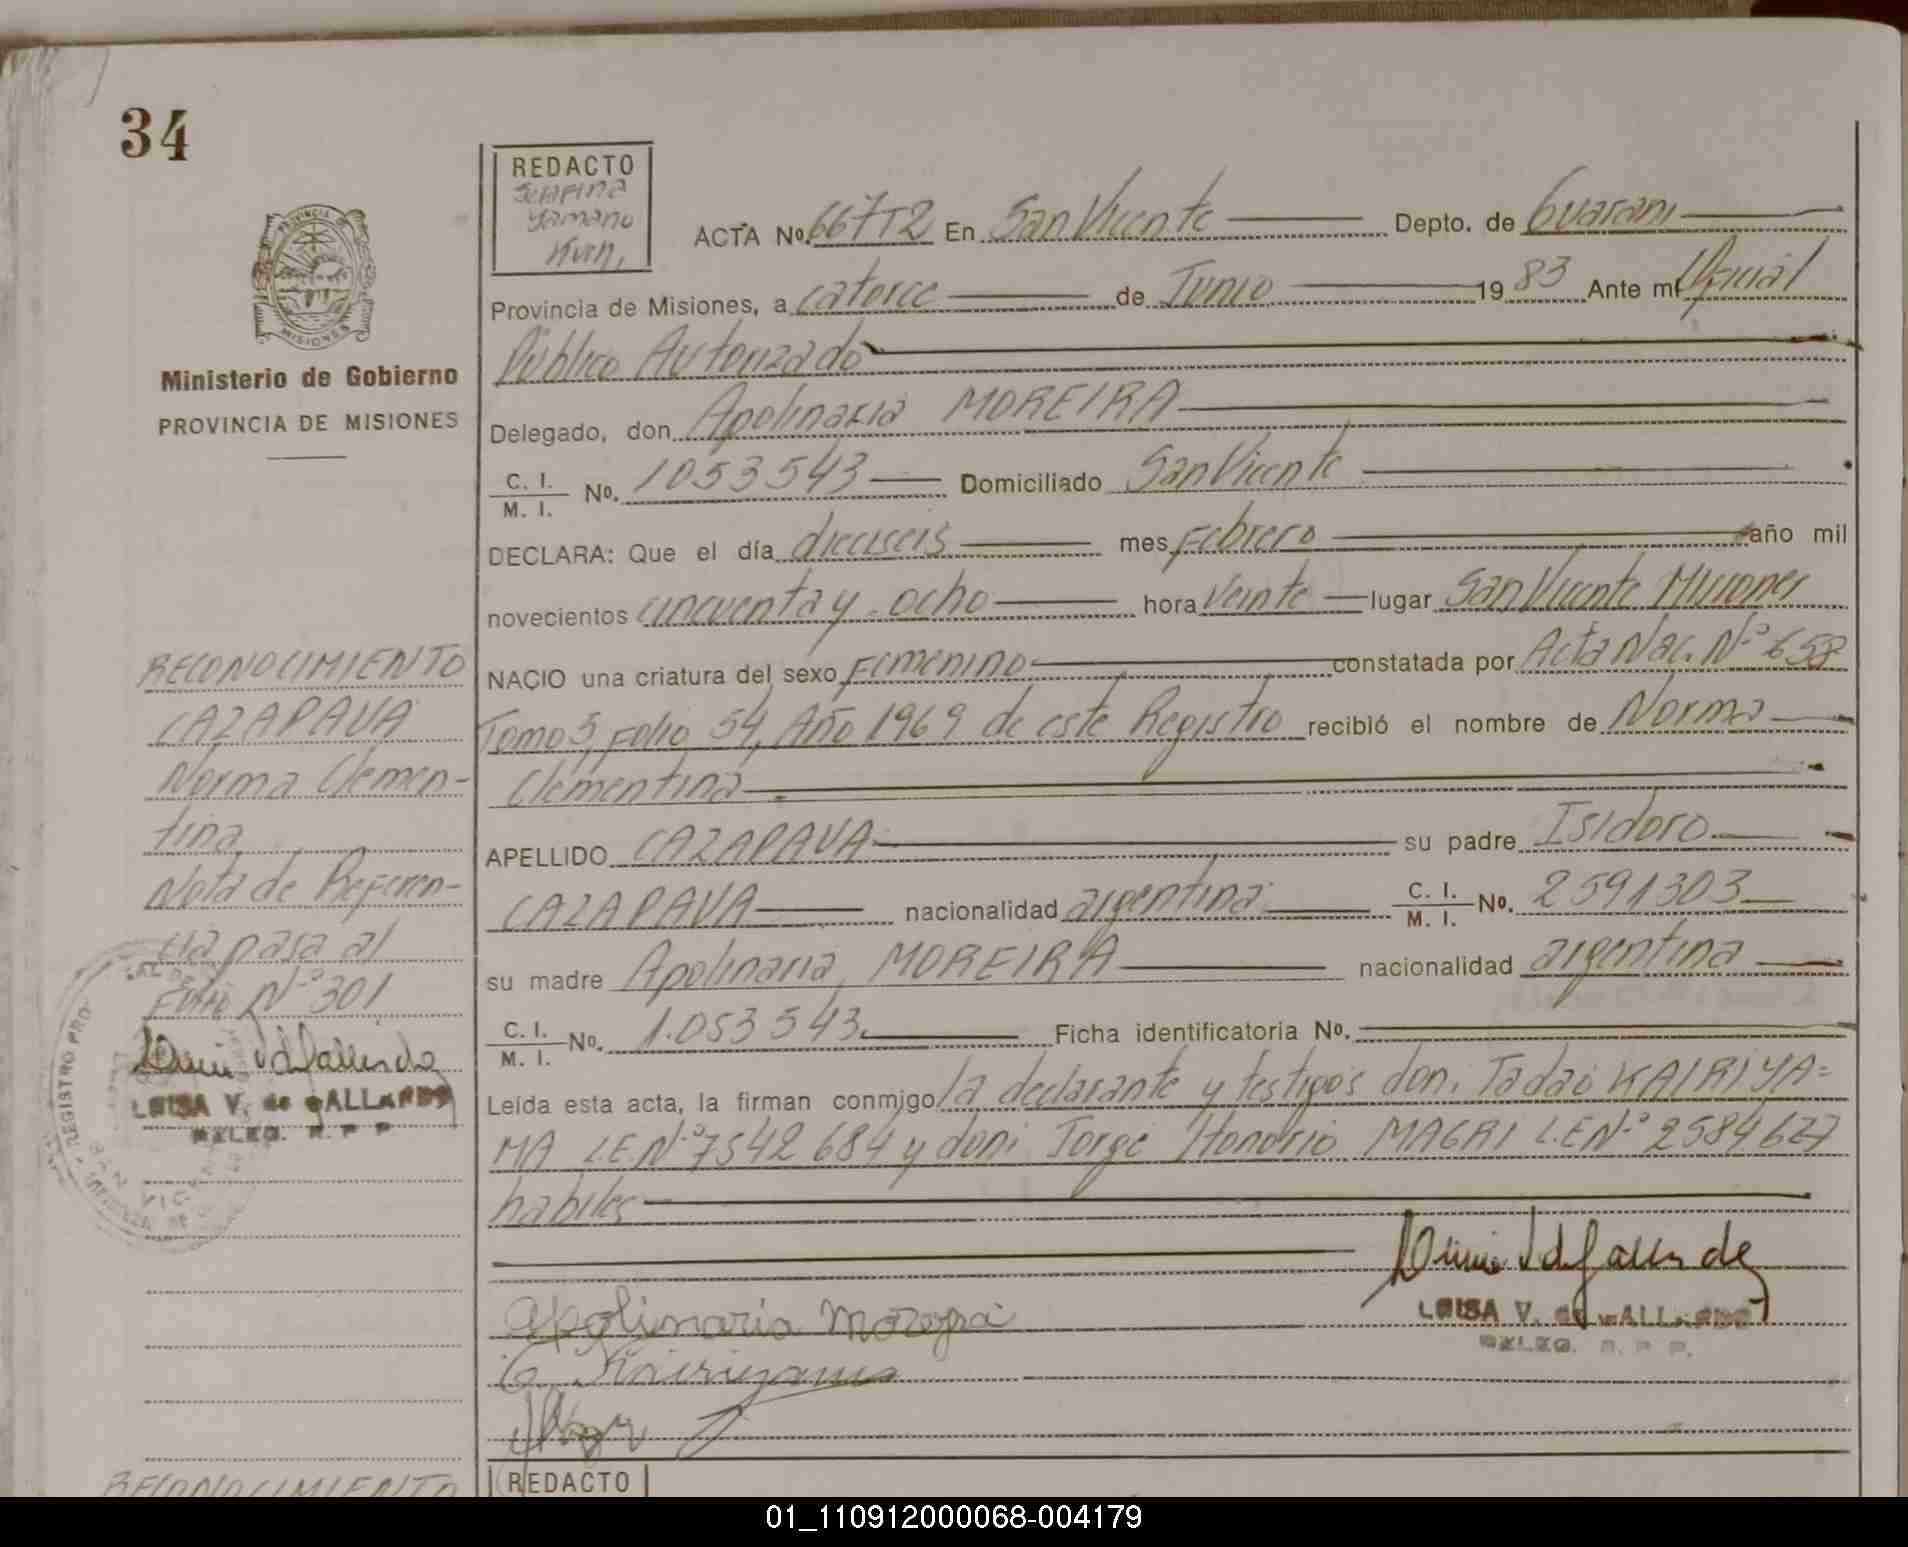 34
REDACTO
Serafina
Yamano
Kuen,
ACTA No. 667T2 En San Vicente Depto. de Guarani
Provincia de Misiones, a catorce de Junio 19 83 Ante mí Oficial
Público Autorizado
Delegado, don Apolinaria MOREIRA
C. I. / M. I. No. 1053543 Domiciliado San Vicente
DECLARA: Que el día dieciseis mes Febrero año mil
novecientos cincuenta y ocho hora veinte lugar San Vicente Misiones
NACIO una criatura del sexo Femenino constatada por Acta Nac. Nº 658
Tomo 3, Folio 54, Año 1969 de este Registro recibió el nombre de Norma
Clementina
APELLIDO CAZAPAVA su padre Isidoro
CAZAPAVA nacionalidad argentina C. I. / M. I. No. 2591303
su madre Apolinaria MOREIRA nacionalidad argentina
C. I. / M. I. No. 1.053543 Ficha identificatoria No.
Leída esta acta, la firman conmigo la declarante y testigos don: Tadao KAIRIYA=
MA L.E.Nº 7542684 y don: Jorge Honorio MAGRI L.E Nº 2584627
habiles
LUISA V. de GALLARDO
DELEG. R. P P.
Apolinaria Moreyra
Kairiyama
Ministerio de Gobierno
PROVINCIA DE MISIONES
RECONOCIMIENTO
CAZAPAVA
Norma Clemen-
tina
Nota de Referen-
cia pasa al
Folio Nº 301
LUISA V. de GALLARDO
DELEG. R. P P
RECONOCIMIENTO
REDACTO
01_110912000068-004179